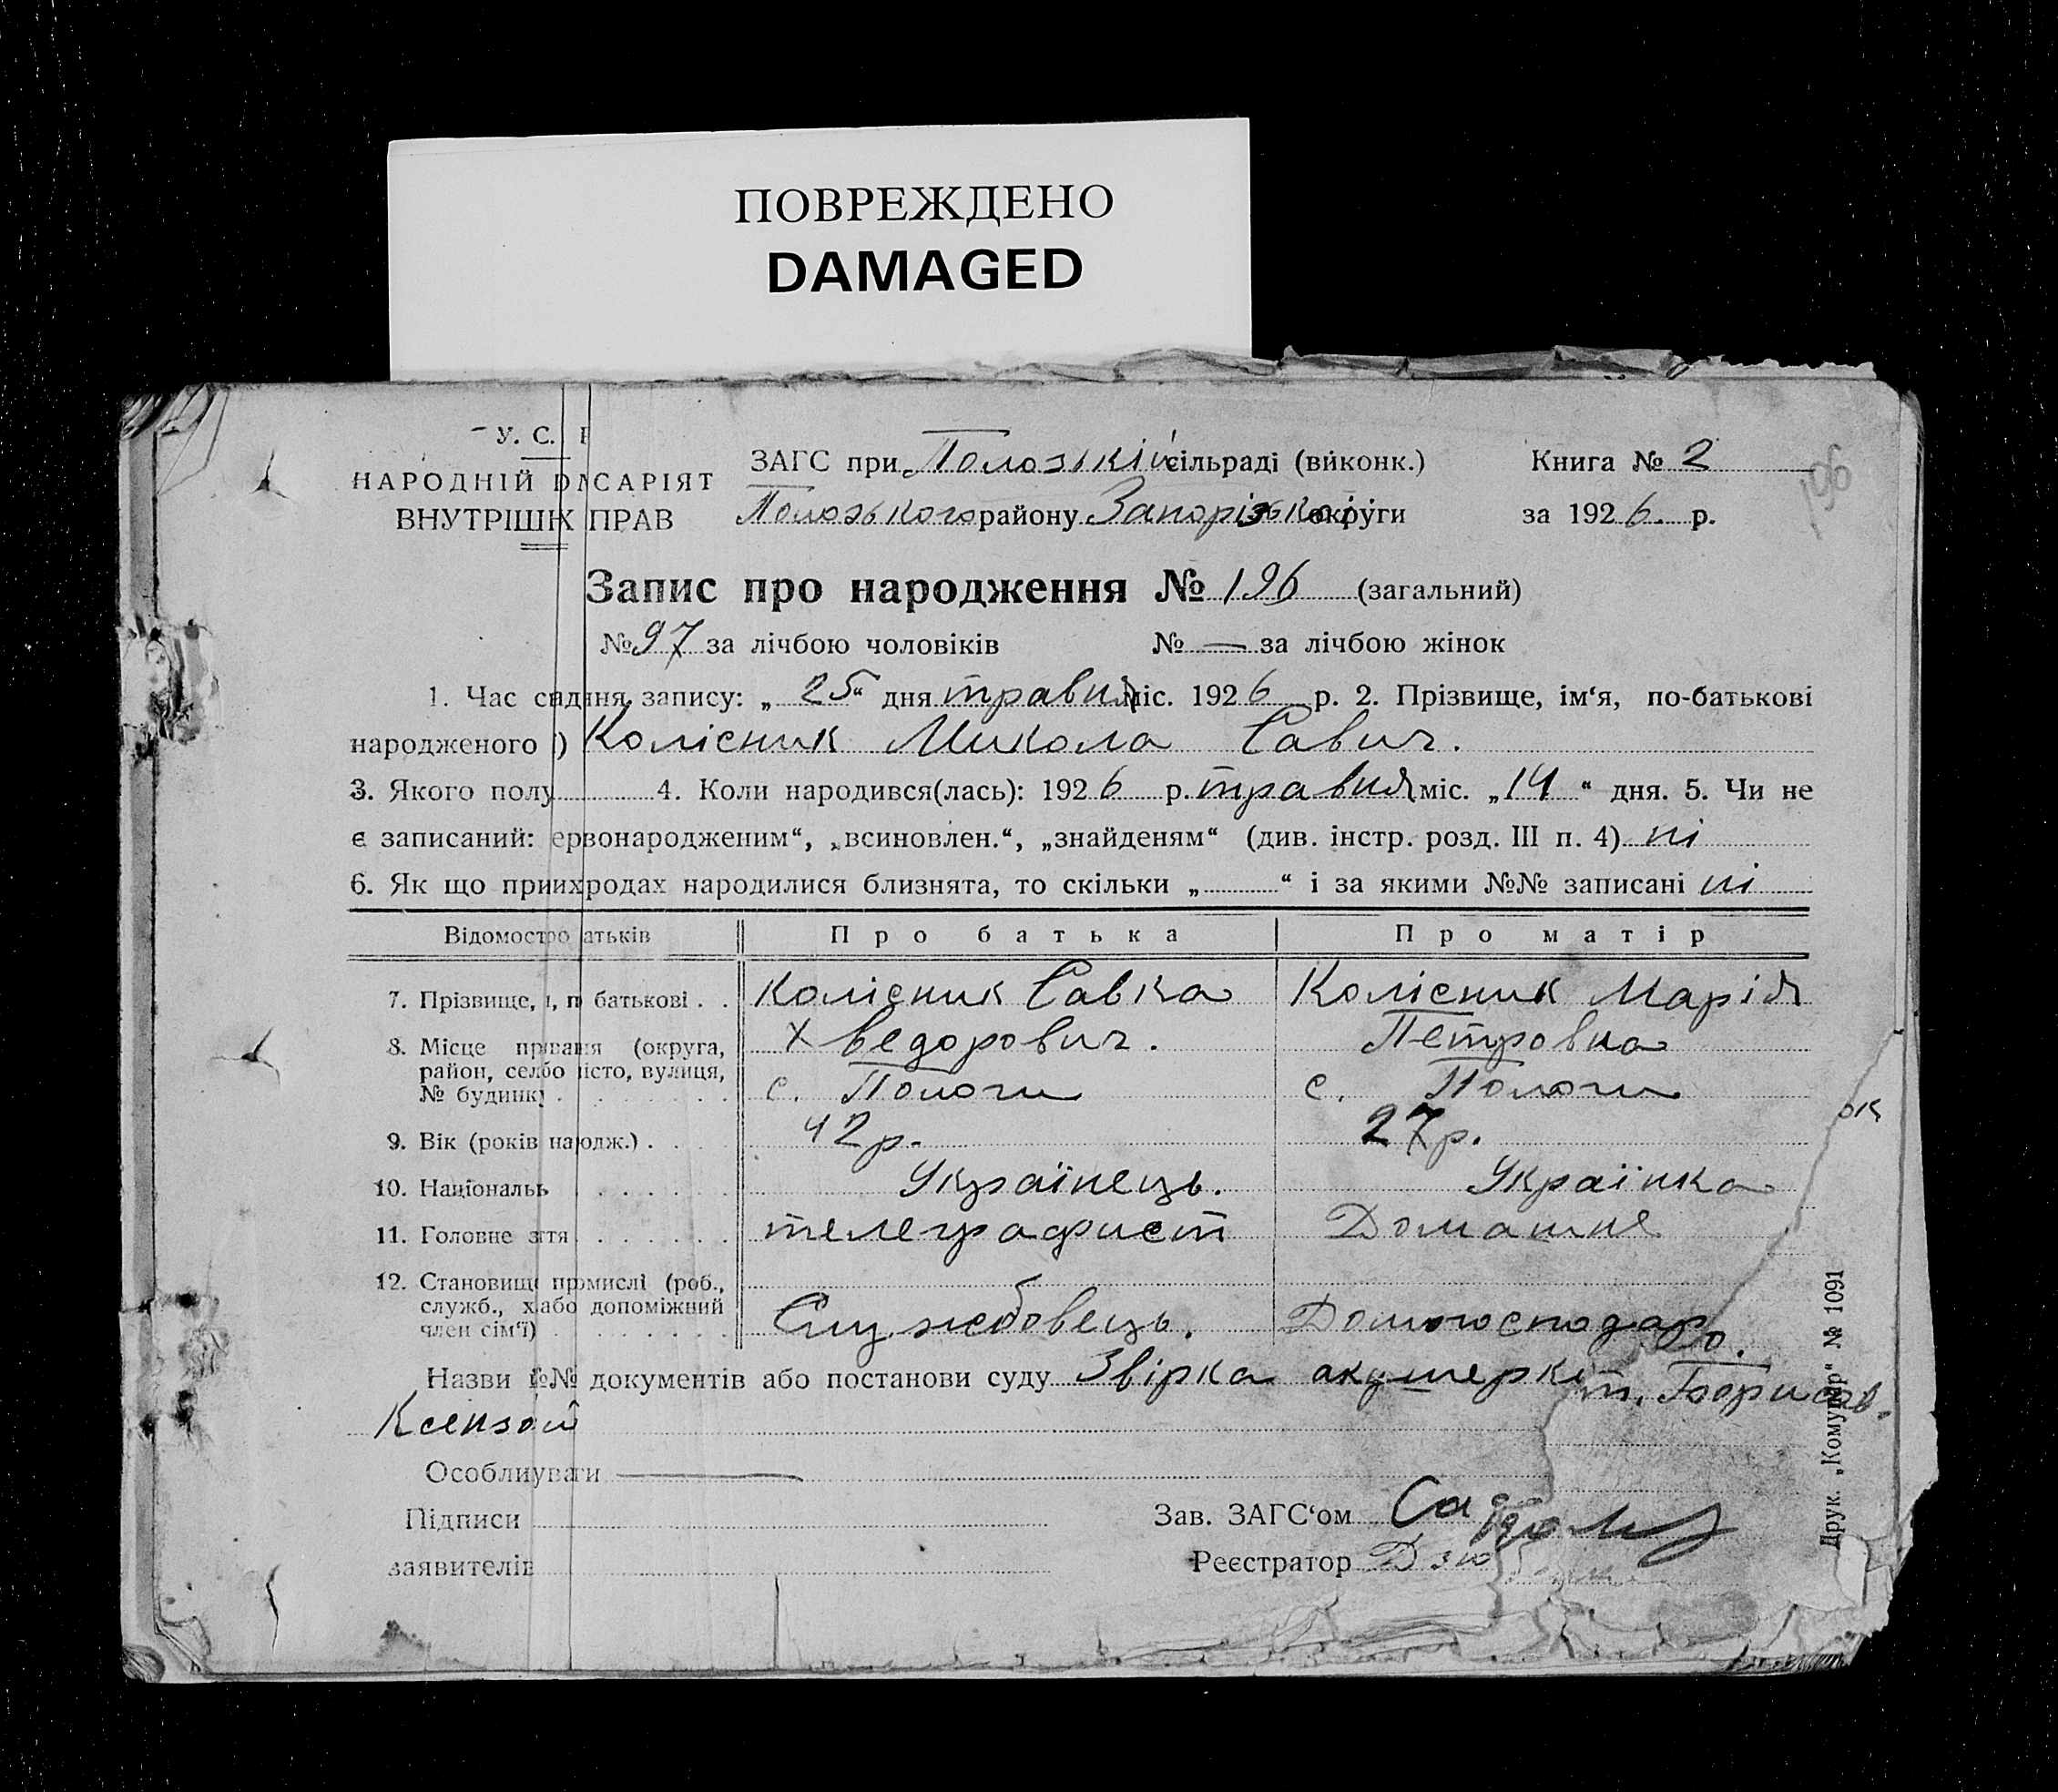 ПОВРЕЖДЕНО
DAMAGED
У. С.
НАРОДНІЙ САРІЯТ
ВНУТРІШН ПРАВ
ЗАГС при Полозькій сільраді (виконк.) Книга № 2
196
Полозького району Запорізької округи за 1926 р.
Запис про народження № 196 (загальний)
№ 97 за лічбою чоловіків № — за лічбою жінок
1. Час запису: „25“ дня травня міс. 1926 р. 2. Прізвище, ім‘я, по-батькові
народженого ) Колісник Микола Савич.
3. Якого полу 4. Коли народився(лась): 1926 р. травня міс. „14“ дня. 5. Чи не
є записаний: ервонародженим“, „всиновлен.“, „знайденям“ (див. інстр. розд. III п. 4) ні
6. Як що при родах народилися близнята, то скільки „ “ і за якими №№ записані ні
Відомост атьків Про батька Про матір
7. Прізвище, батькові . . Колісник Савка Колісник Марія
Хведорович. Петровна
8. Місце (округа,
район, село істо, вулиця,
№ будинк с. Пологи с. Пологи
9. Вік (років 42 р. 27 р.
10. Національ Українець. Українка
11. Головне телеграфист Домашнє
12. Становищ промислі (роб.,
служб., або допоміжний
член сім‘ї) Службовець. Домогосподар.
Назви №№ документів або постанови суду Звірка акушерки т. Борисов.
Особли
Підписи Зав. ЗАГС‘ом
заявителів Реєстратор
Друк. „Комунар“ № 1091